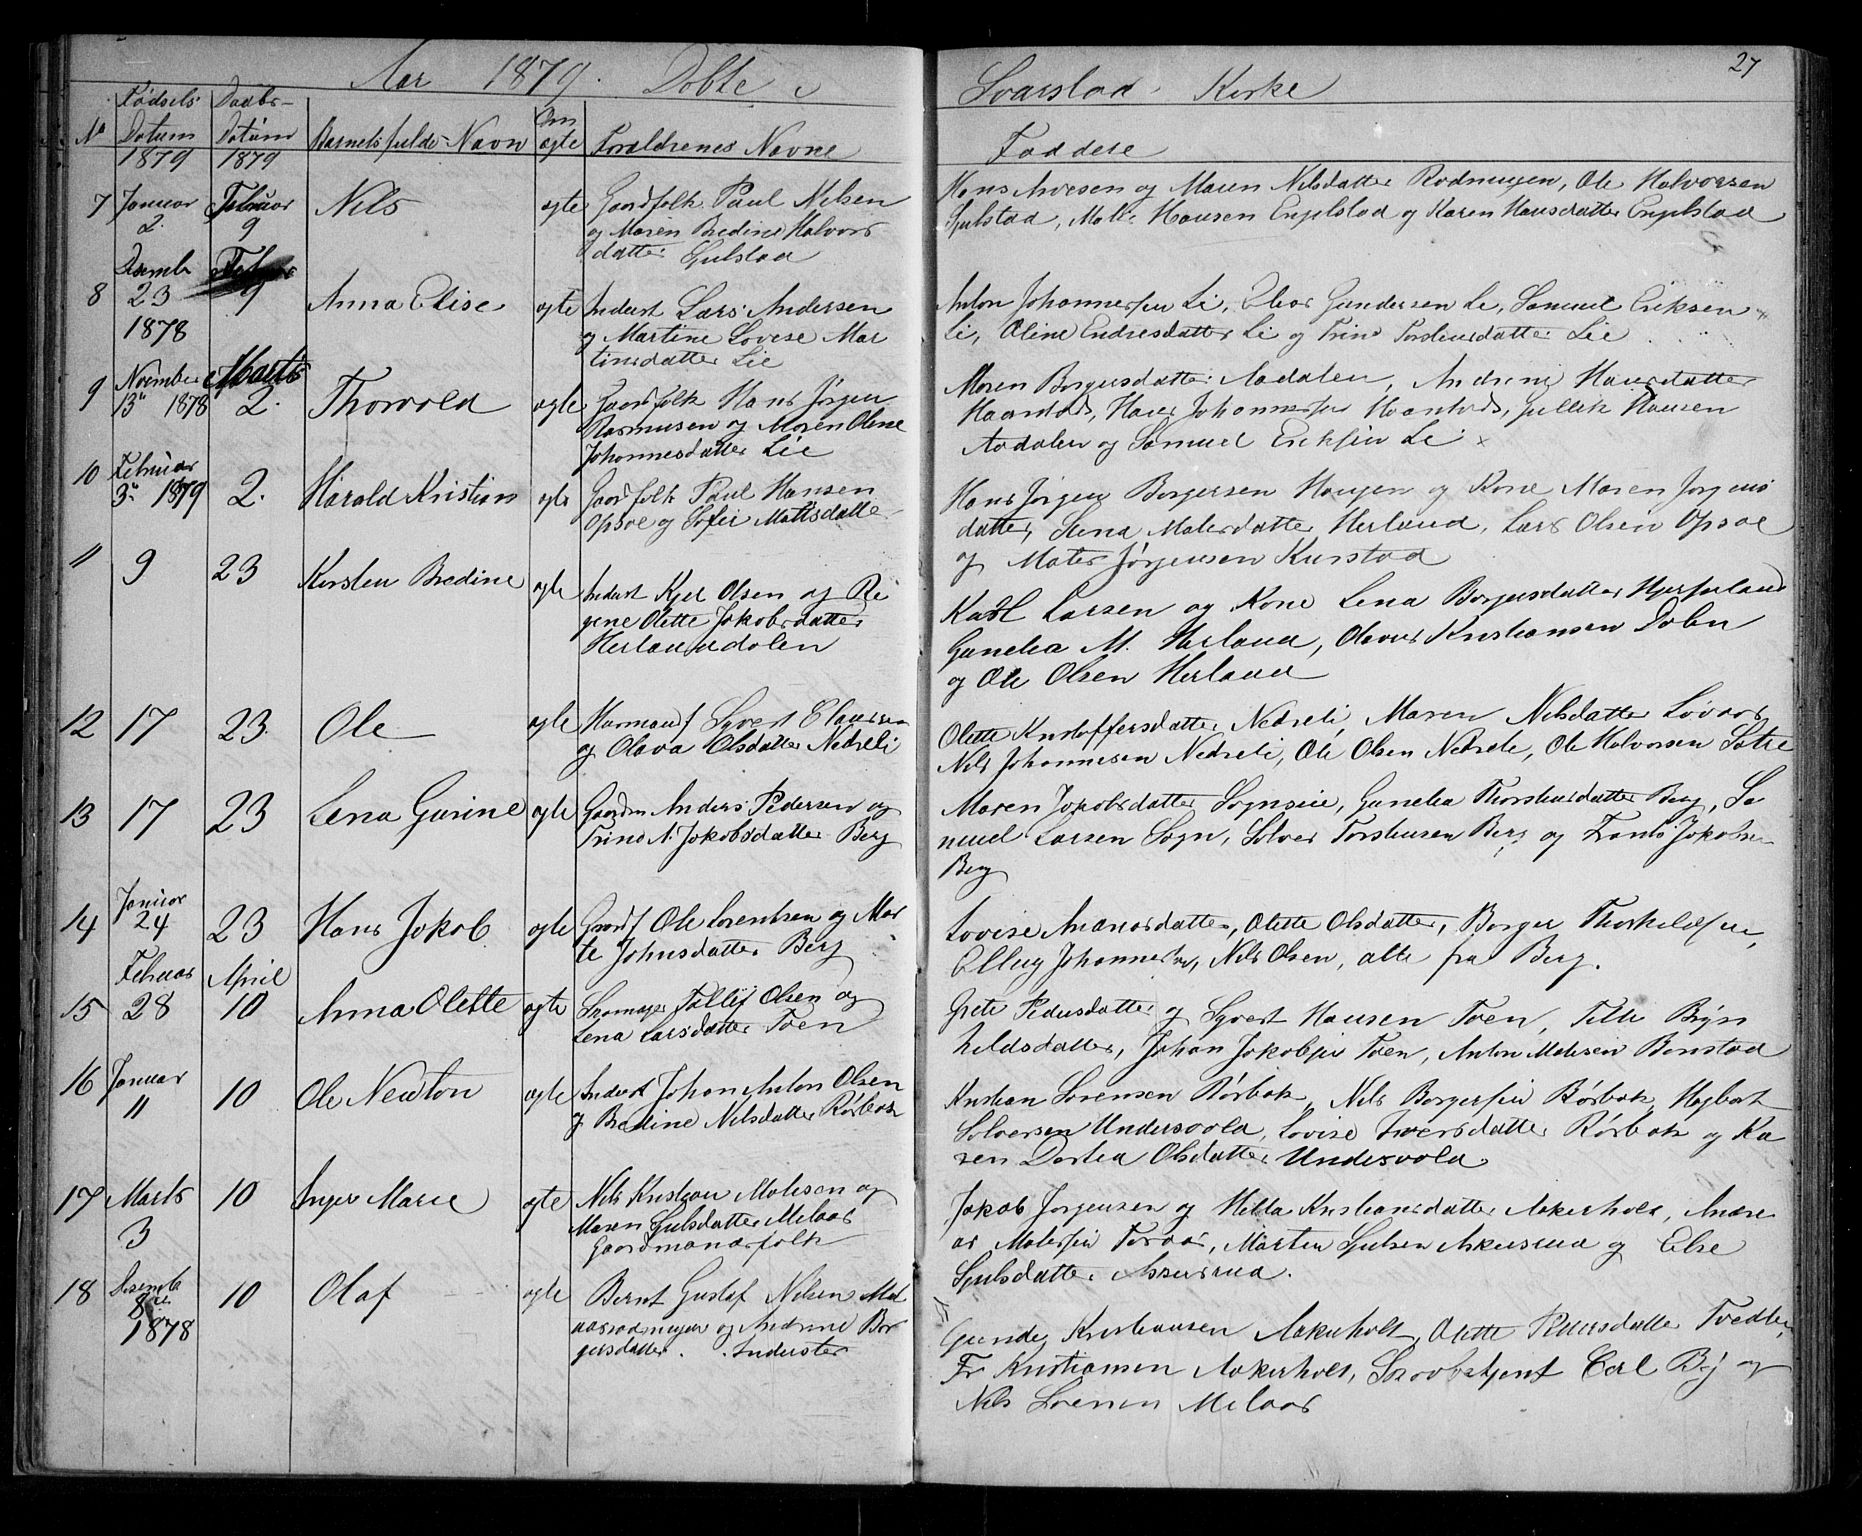 27
Aar 1879. Døbte i Svarstad Kirke
No Fødsels- Datum 1879 Daabs- Datum 1879 Barnets fulde Navn Om ægte Forældrenes Navne Faddere
7 Januar 2. Februar 9 Nils ægte Gaardfolk Paul Nilsen
og Maren Bredine Halvors
datter Gulstad
Hans Iversen og Maren Nilsdatter Rodmyren, Ole Halvorsen
Gulstad, Hansen Engelstad og Karen Hansdatter Engelstad
8 Desemb 23 1878 9 Anna Elise ægte Inderst Lars Andersen
og Martine Lovise Mar
tinsdatter Lie
Anton Johannessen Li, Gundersen Li, Samuel Eriksen
Li, Oline Endresdatter Li og Trine Torstensdatter Lie
9 November 13de 1878 Marts 2. Thorvald ægte Gaardfolk Hans Jørgen
Rasmusen og Maren Oline
Johannesdatter Lie
Maren Borgersdatter Aadalen, Andrine Hansdatter
Haanstad, Hans Johannessen Haanstad, Gullik Hansen
Aadalen og Samuel Eriksen Li
10 Februar 3de 1879 2. Harald Kristian ægte Gaardfolk Paul Hansen
Opsae og Sofie Mattsdatter
Hans Jørgen Borgersen Haugen og Kone Maren Jørgens
datter, Stena Matesdatter Herland, Lars Olsen Opsae
og Mates Jørgensen Kurstad
11 9 23 Kirsten Bredine ægte Inderst Kjel Olsen og Re
gine Olette Jakobsdatter
Herlanddalen
Karl Larsen og Kone Lena Borgersdatter
Gunelia M. Herland, Olavus Kristiansen Dalen
og Ole Olsen Herland
12 17 23. Ole ægte Husmandf Syvert Clausen
og Olava Olsdatter Nedreli
Olette Kristoffersdatter Nedreli, Maren Nilsdatter Lovaas
Nils Johannesen Nedreli, Ole Olsen Nedreli, Ole Halvorsen Sætre
13 17 23 Lena Gurine ægte Gaardm Anders Pedersen og
Trine N. Jakobsdatter Berg
Maren Jakobsdatter Sognseie, Gunelia Thorstensdatter Berg, Sa
muel Larsen Sogn, Solver Torstensen Berg og Frants Jakobsen
Berg
14 Januar 24 23 Hans Jakob ægte Gaardf Ole Lorentsen og Mar
te Johnsdatter Berg
Lovise Amandsdatter, Olette Olsdatter, Borger Thorkildsen,
Ellug Johannessen, Nils Olsen, alle fra Berg.
15 Februar 28 April 10 Anna Olette ægte Skomager Tollif Olsen og
Lena Larsdatter Toen
Grete Pedersdatter og Syvert Hansen Toen, Brÿn
hildsdatter, Johan Jakobsen Toen, Anton Matesen Bonstad
16 Januar 11 10 Ole Newton ægte Inderst Johan Anton Olsen
og Bredine Nilsdatter Rørbak
Kristian Sørensen Rørbak, Nils Borgersen Rørbak, Hagbart
Solversen Undersvola, Lovise Iversdatter Rørbak og Ka
ren Dortea Olsdatter Undersvola
17 Marts 3 10 Inger Marie ægte Nils Kristian Matesen og
Maren Gulsdatter Melaas
Gaardmandsfolk
Jakob Jørgensen og Hella Kristiansdatter Askerholt, Andre
as Matessen Foraas, Marten Gulsen Askerud og Else
Gulsdatter Askerud.
18 Desemb 8de 1878 10 Olaf ægte Bernt Gustaf Nilsen Mel
aasrødningen og Andrine Bor
gersdatter. Inderster
Gunde Kristiansen Aakerholt, Olette Pedersdatter Tvedten,
Fr Kristiansen Aakerholt, Skovbetjent Carl Bÿ og
Nils Sørensen Melaas